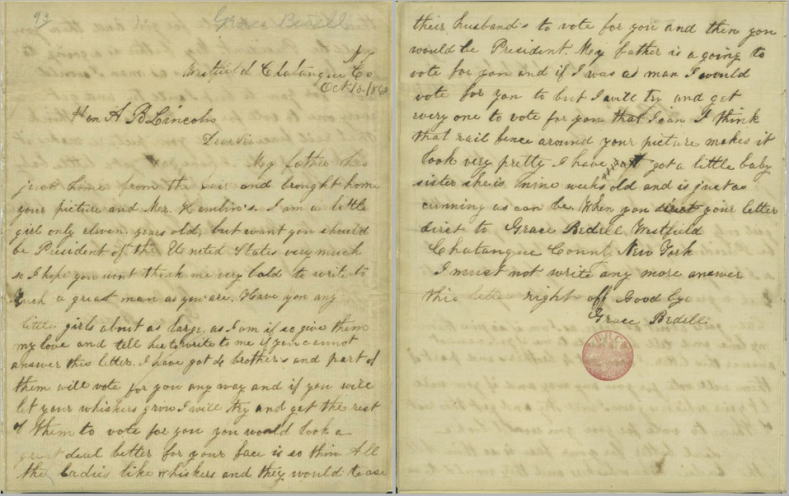 93 Grace Bedell
N Y
Westfield Chatauque Co
Oct 15. 1860
Hon A B Lincoln
Dear Sir
My father has
just home from the fair and brought home
your picture and Mr. Hamlin's. I am a little
girl only eleven years old, but want you should
be President of the United States very much
so I hope you wont think me very bold to write to
such a great man as you are. Have you any
little girls about as large as I am if so give them
my love and tell her to write to me if you cannot
answer this letter. I have got 4 brothers and part of
them will vote for you any way and if you will
let your whiskers grow I will try and get the rest
of them to vote for you you would look a
great deal better for your face is so thin All
the ladies like whiskers and they would tease
their husband's to vote for you and then you
would be President. My father is a going to
vote for you and if I was a man I would
vote for you to but I will try and get
every one to vote for you that I can I think
that rail fence around your picture makes it
look very pretty I have got a little baby
sister she is nine weeks old and is just as
cunning as can be. When you direct your letter
direct to Grace Bedell Westfield
Chatauque County New York
I must not write any more answer
this letter right off Good bye
Grace Bedell